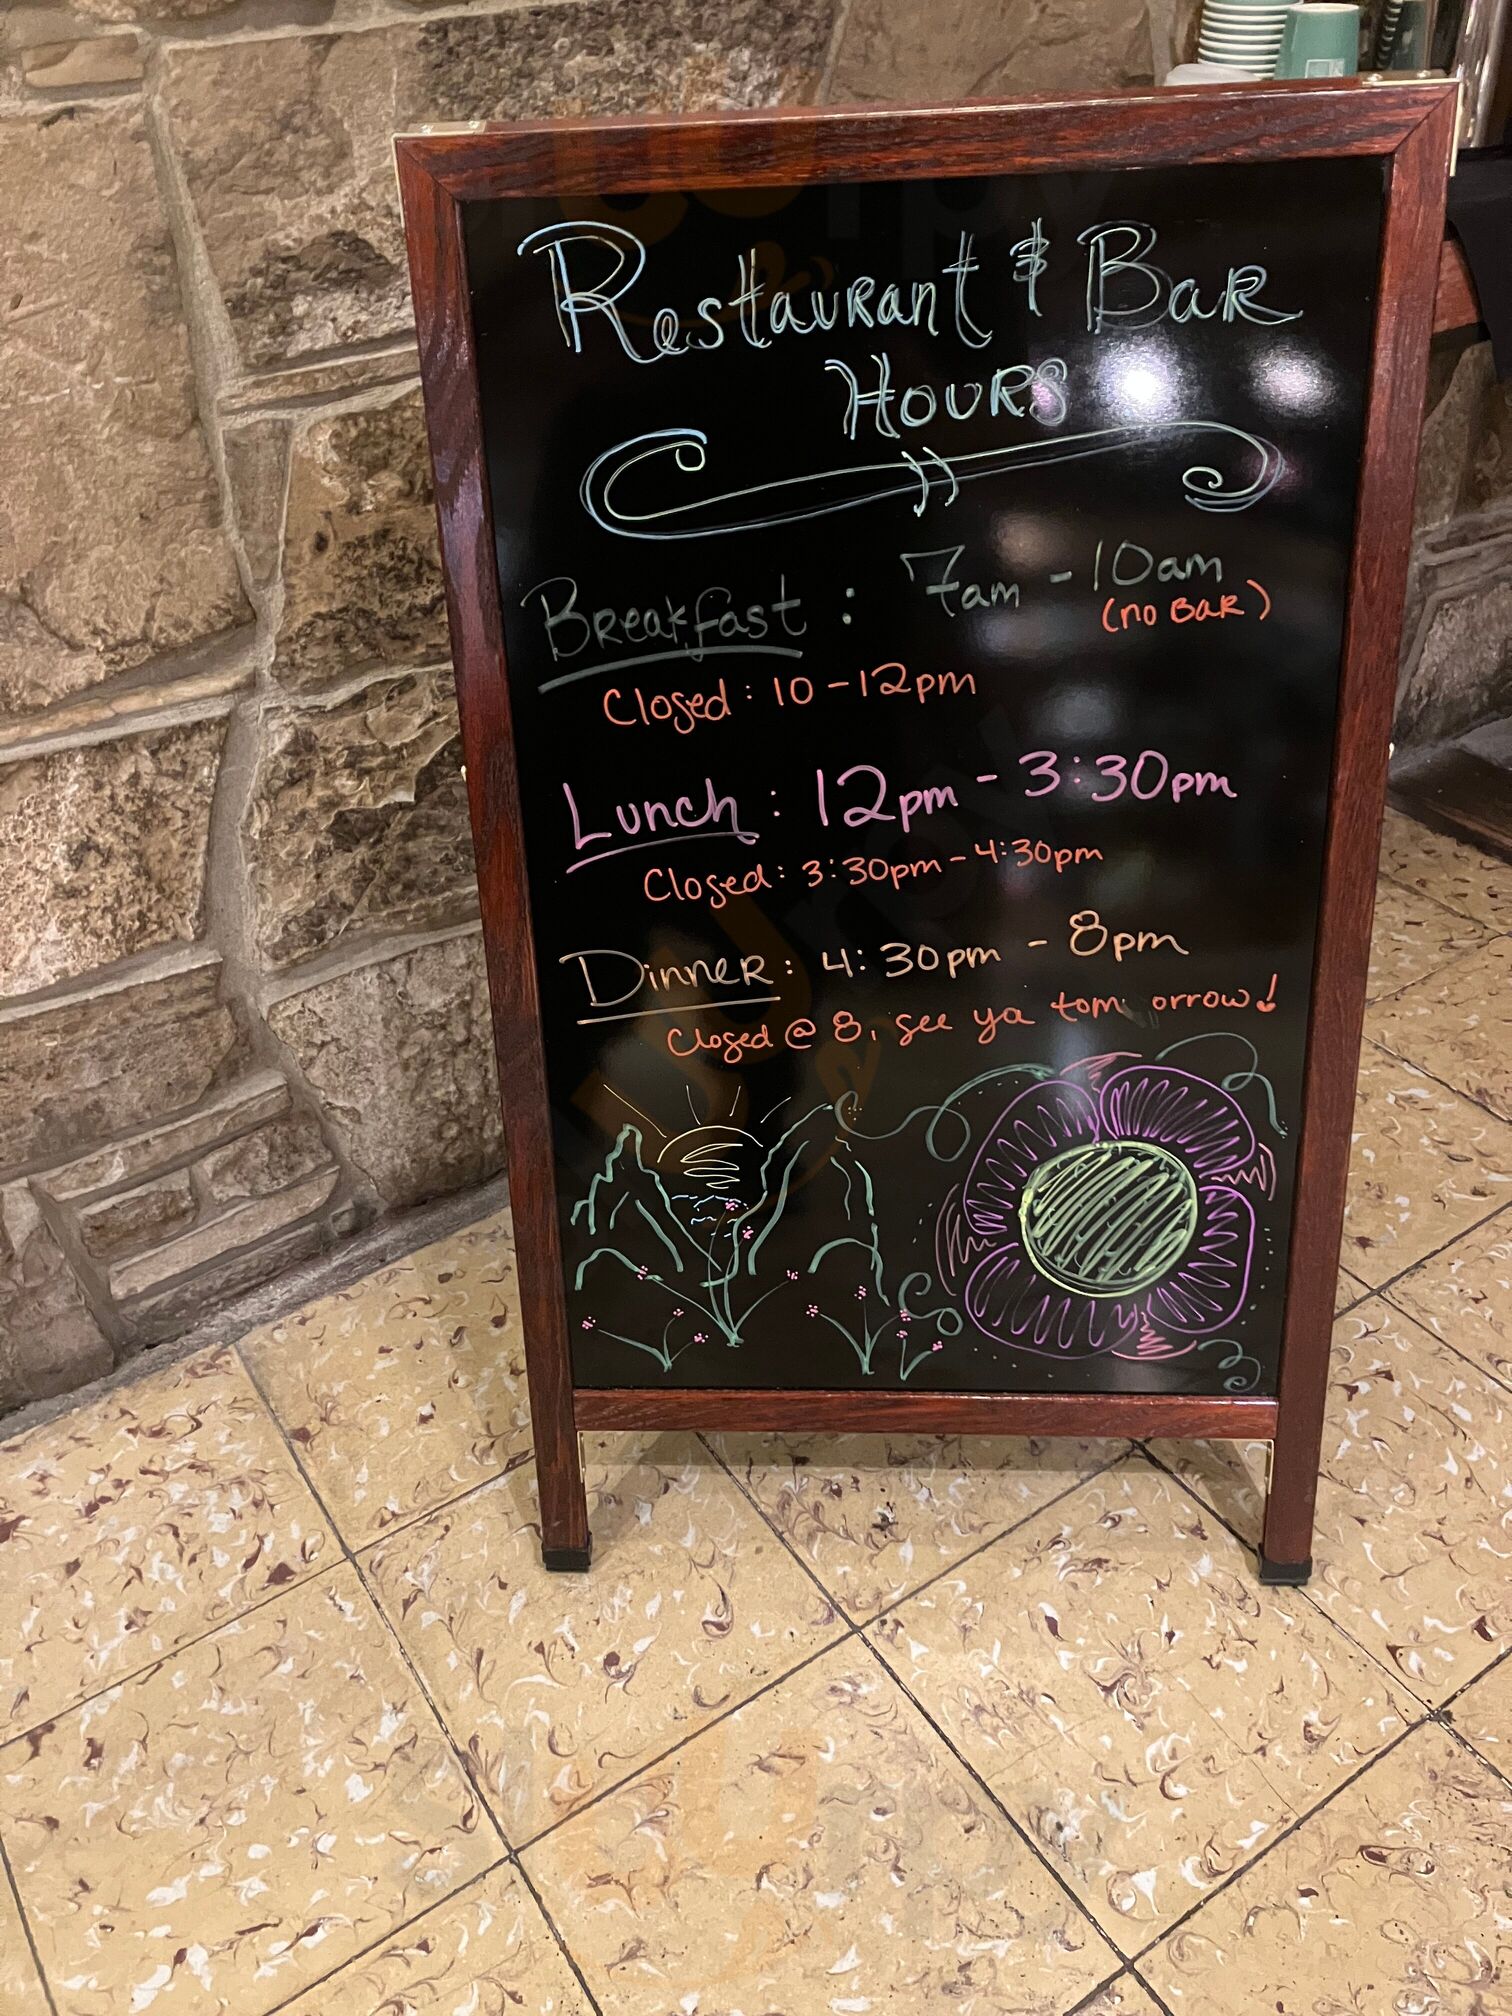 Restaurant & Bar
Hours
Breakfast: 7am - 10am
(no Bar)
Closed: 10 - 12pm
Lunch: 12pm - 3:30pm
Closed: 3:30pm - 4:30pm
Dinner: 4:30pm - 8pm
Closed @ 8, see ya tom orrow!